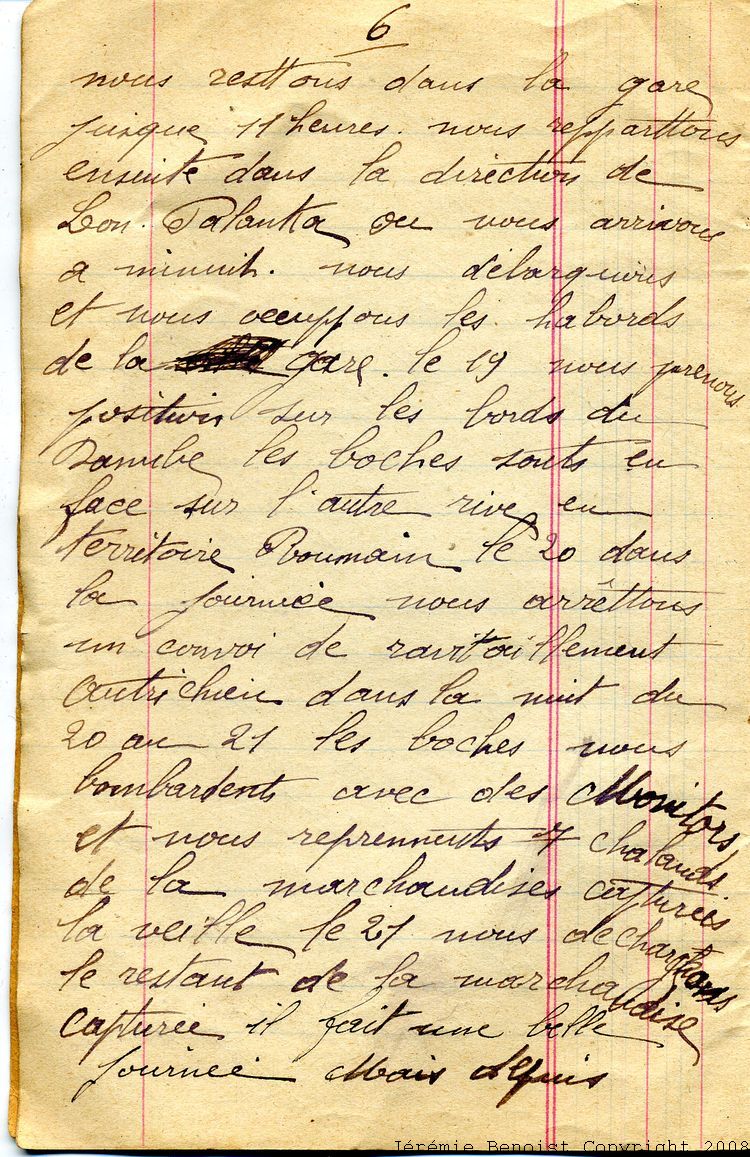 6
nous resttons dans la gare
jusque 11 heures. nous repparttons
ensuite dans la direction de
Lom. Palanka ou nous arrivons
a minuit. nous débarquons
et nous occuppons les habords
de la gare. le 19 nous prenons
position sur les bords du
Danube les boches sonts en
face sur l'autre rive en
territoire Roumain le 20 dans
la journée nous arrêttons
un convoi de ravitaillement
autrichien dans la nuit du
20 au 21 les boches nous
bombardents avec des Monitors
et nous reprennents 7 chalands
de la marchandises capturées
la veille le 21 nous dechargeons
le restant de la marchandise
capturée il fait une belle
journée Mais depuis
Jérémie Benoist Copyright 2008